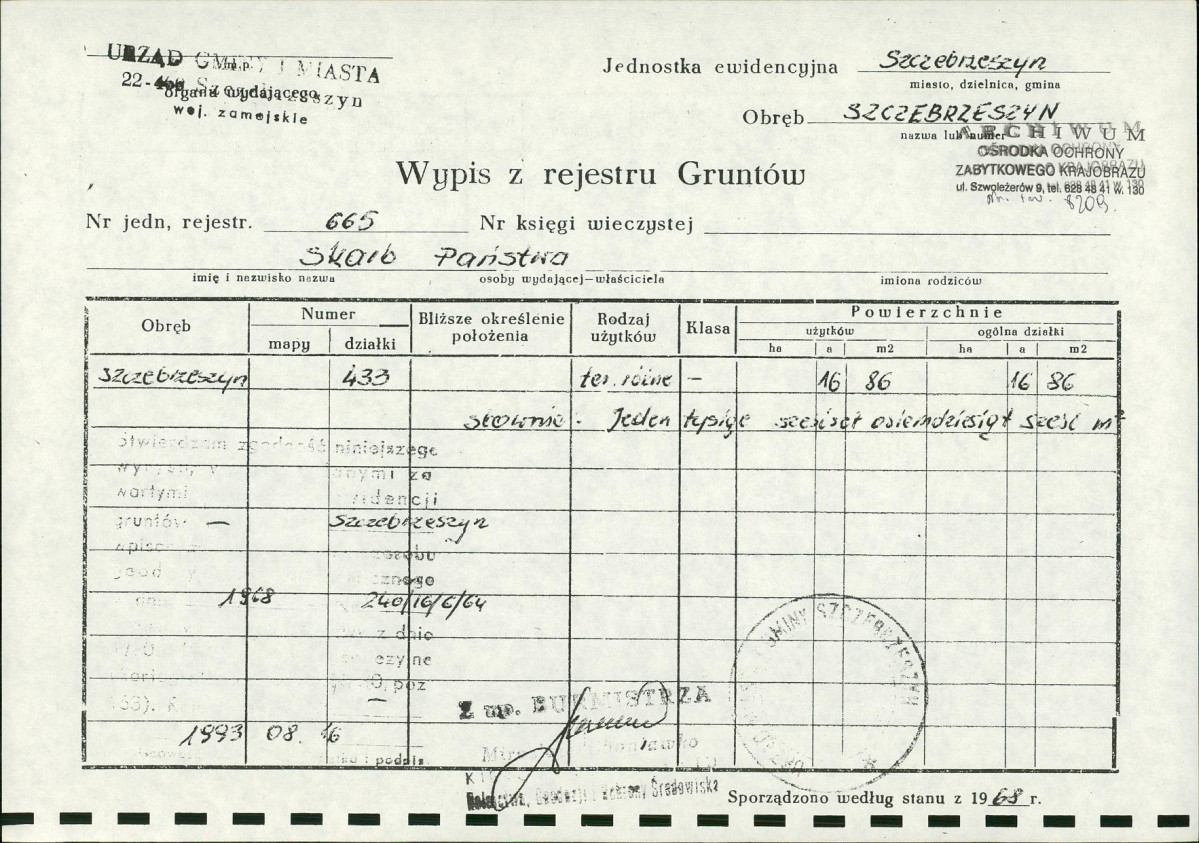 URZĄD GMINY I MIASTA
m.p.
22-460 Szczebrzeszyn
organu wydającego
woj. zamojskie
Jednostka ewidencyjna Szczebrzeszyn
miasto, dzielnica, gmina
Obręb SZCZEBRZESZYN
nazwa lub numer
ARCHIWUM
OŚRODKA OCHRONY
ZABYTKOWEGO KRAJOBRAZU
ul. Szwoleżerów 9, tel. 628 48 41 w. 130
8209
Wypis z rejestru Gruntów
Nr jedn, rejestr. 665 Nr księgi wieczystej
Skarb Państwa
imię i nazwisko nazwa osoby wydającej—właściciela imiona rodziców
Obręb Numer Bliższe określenie położenia Rodzaj użytków Klasa Powierzchnie
mapy działki użytków ogólna działki
ha a m2 ha a m2
Szczebrzeszyn 433 ter. różne — 16 86 16 86
słownie - Jeden tysiąc sześćset osiemdziesiąt sześć m²
Stwierdzam zgodność niniejszego
za
wartymi
gruntów — Szczebrzeszyn
1968 240/16/6/64
z dnia
poz
1993 08. 16
i podpis
Z up. BURMISTRZA
Rolnictwa, Geodezji i Ochrony Środowiska
GMINY SZCZEBRZESZYN
Sporządzono według stanu z 1968 r.